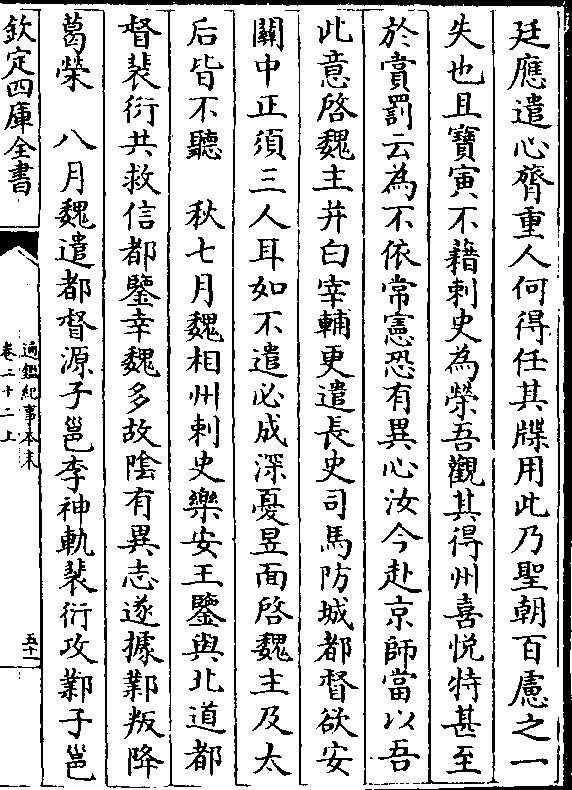 廷應遣心膂重人何得任其牒用此乃聖朝百慮之一
失也且寶寅不藉刺史為榮吾觀其得州喜悅特甚至
於賞罰云為不依常憲恐有異心汝今赴京師當以吾
此意啓魏主并白宰輔更遣長史司馬防城都督欲安
關中正須三人耳如不遣必成深憂昱面啓魏主及太
后皆不聽　秋七月魏相州刺史樂安王鑒與北道都
督裴衍共救信都鑒幸魏多故陰有異志遂據鄴叛降
葛榮　八月魏遣都督源子邕李神軌裴衍攻鄴子邕
欽定四庫全書
通鑑紀事本末
卷二十二上
五十一